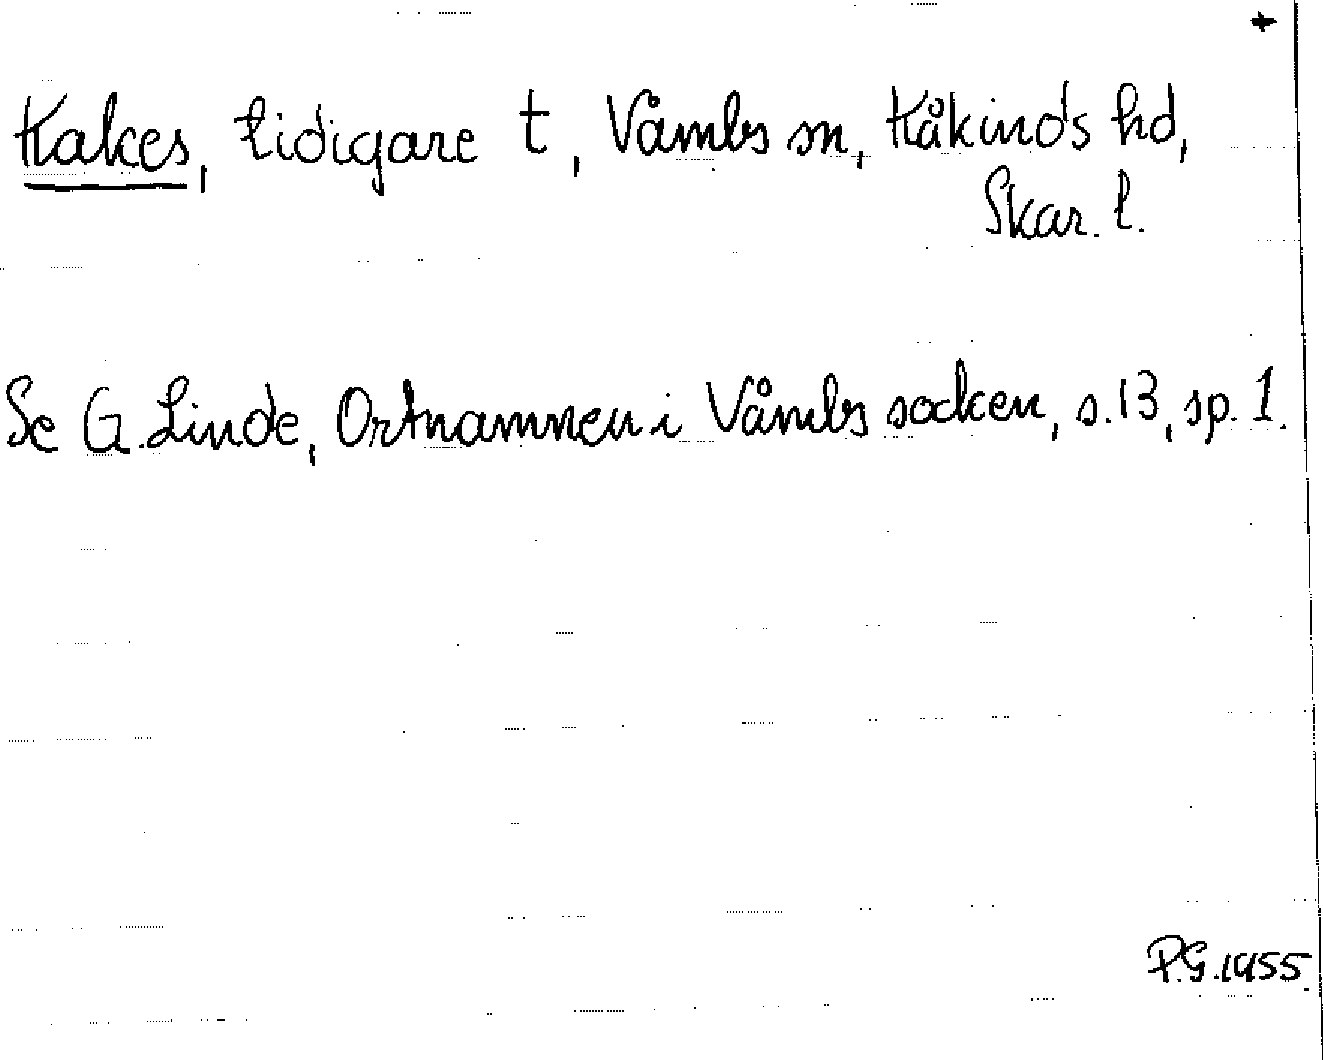 Kakes, tidigare t, Våmbs sn, Kåkinds hd,
Skar. l.
Se G. Linde, Ortnamnen i Våmbs socken, s. 13, sp. 1.
P.G. 1955.